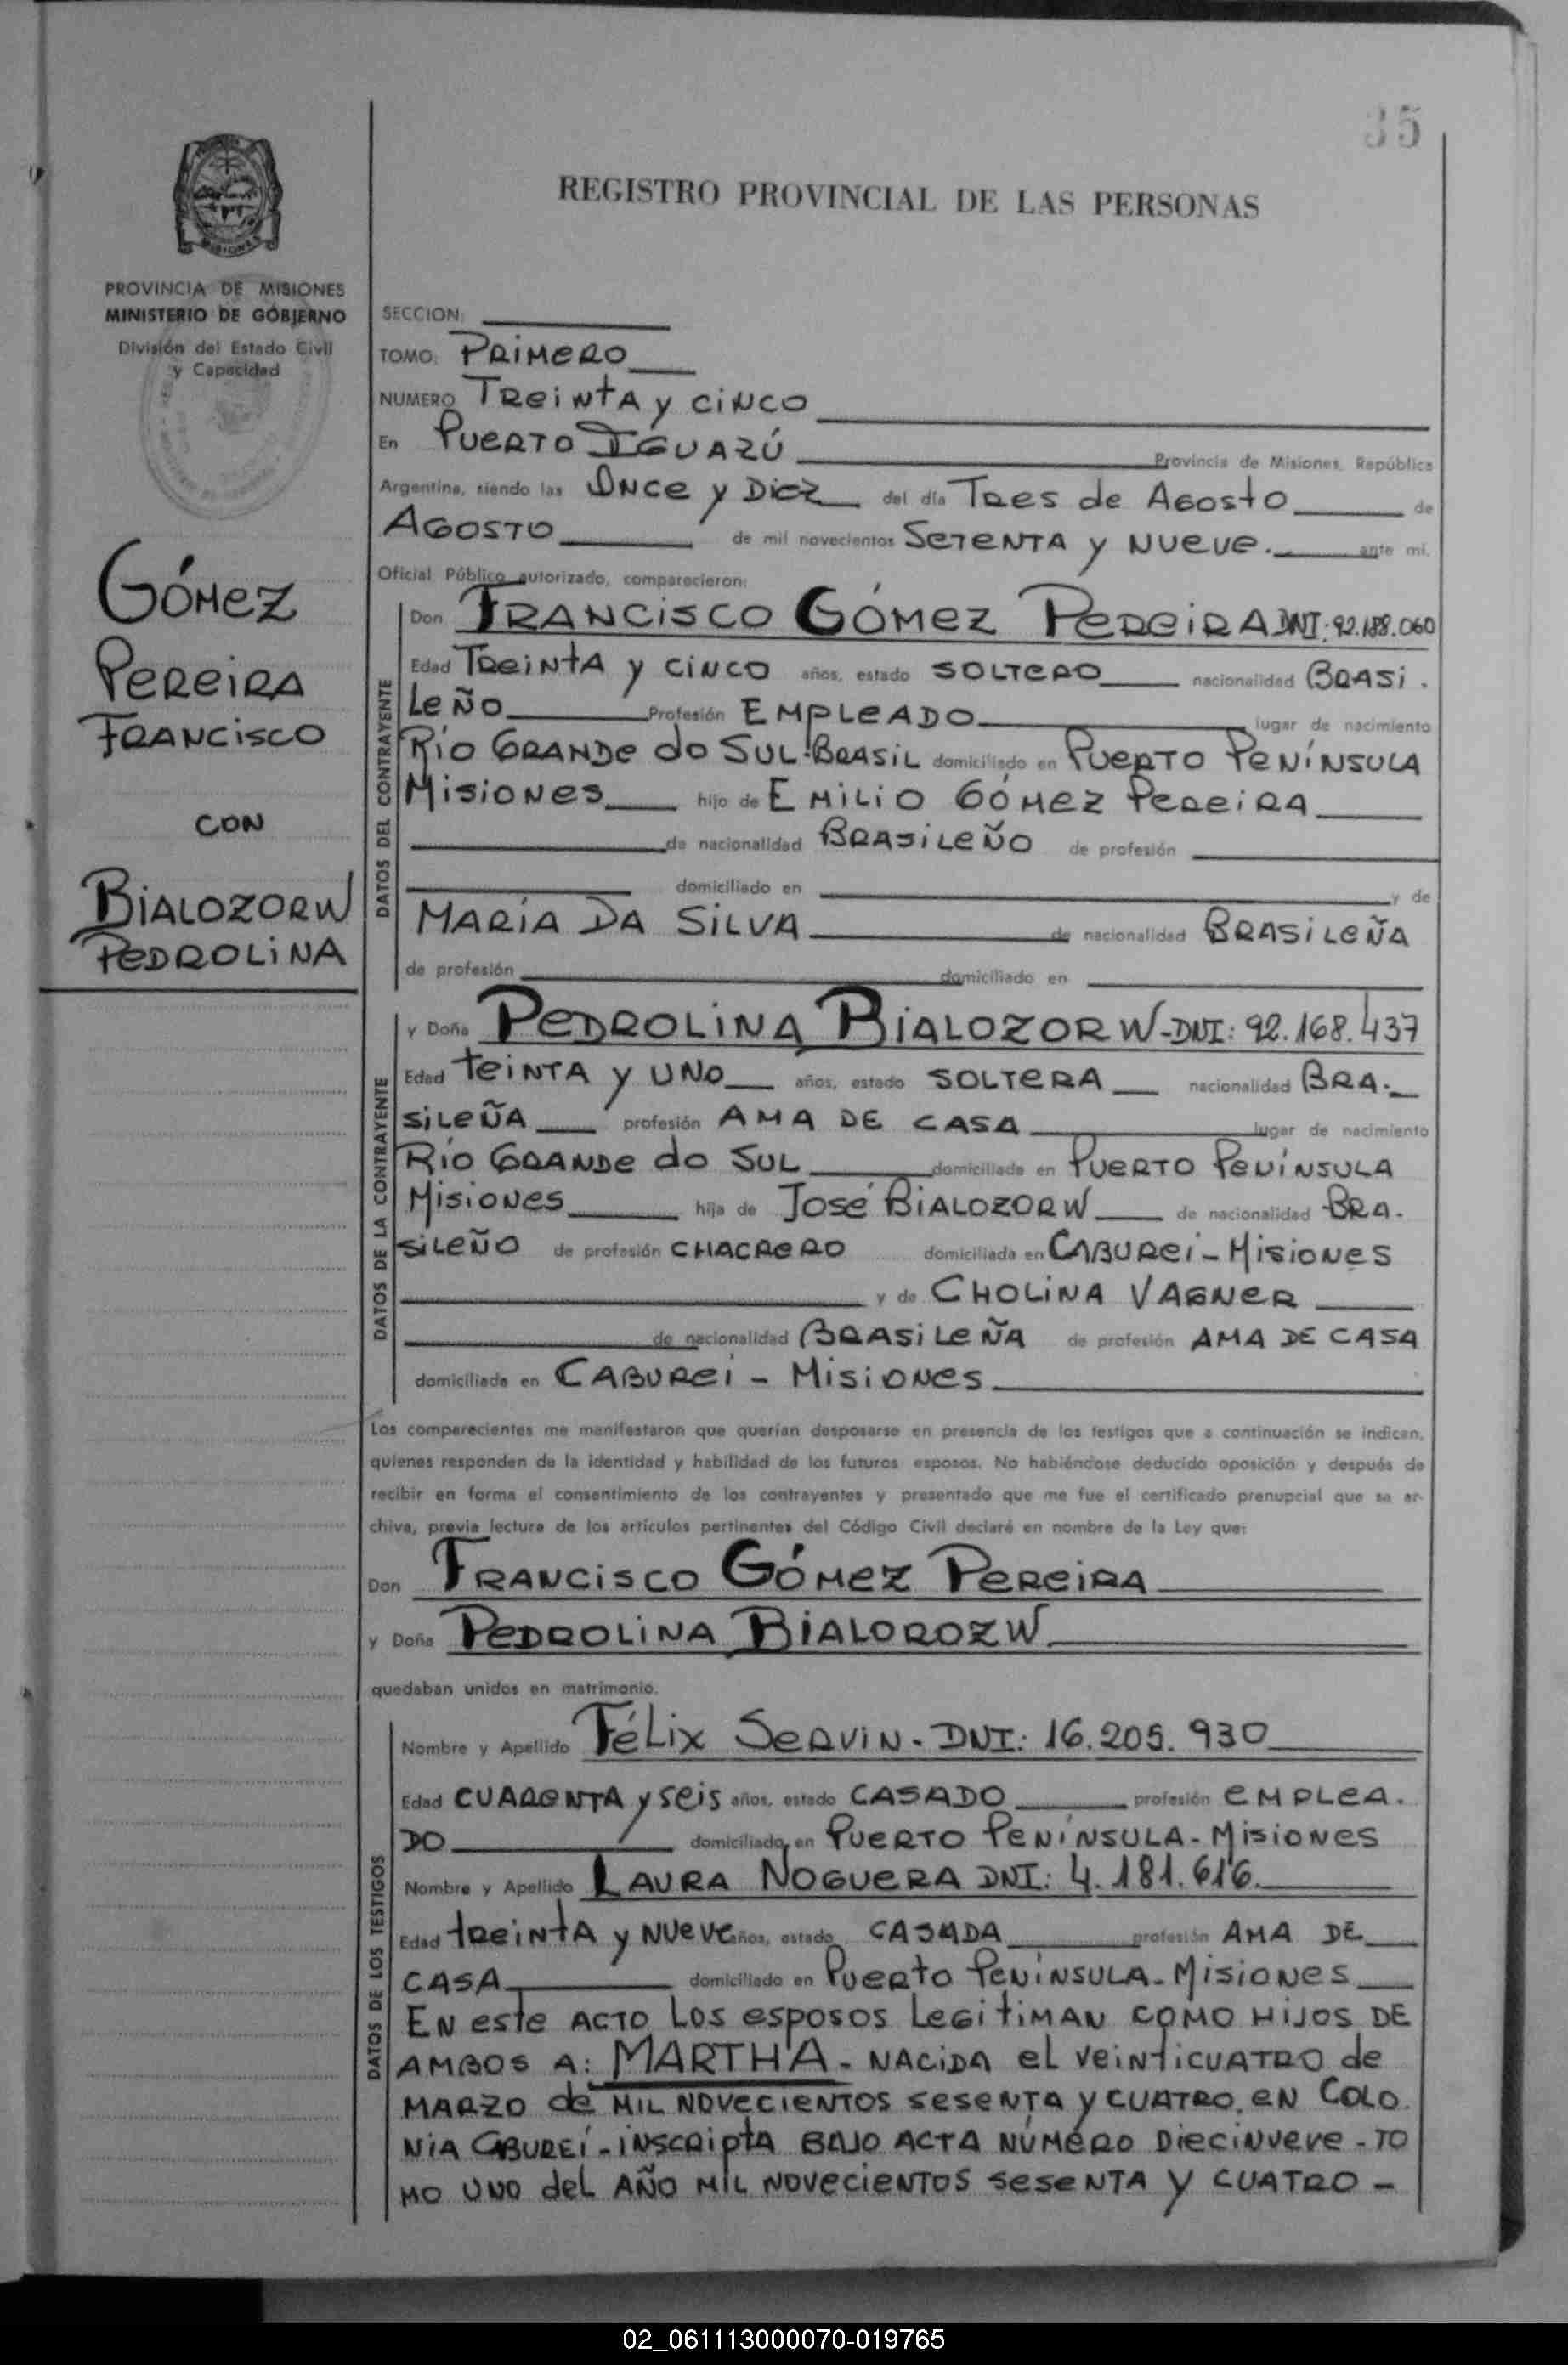 35
REGISTRO PROVINCIAL DE LAS PERSONAS
PROVINCIA DE MISIONES
MINISTERIO DE GOBIERNO
División del Estado Civil
y Capacidad
GÓMEZ
PEREIRA
FRANCISCO
CON
BIALOZORW
PEDROLINA
SECCION:
TOMO: PRIMERO
NUMERO TREINTA y CINCO
En PUERTO IGUAZÚ Provincia de Misiones, República
Argentina, siendo las ONCE y DIEZ del día TRES de AGOSTO de
AGOSTO de mil novecientos SETENTA y NUEVE. ante mi,
Oficial Público autorizado, comparecieron:
DATOS DEL CONTRAYENTE
Don FRANCISCO GÓMEZ PEREIRA DNI: 92.188.060
Edad TREINTA y CINCO años, estado SOLTERO nacionalidad BRASI.
LEÑO Profesión EMPLEADO lugar de nacimiento
RÍO GRANDE do SUL-BRASIL domiciliado en PUERTO PENÍNSULA
MISIONES hijo de EMILIO GÓMEZ PEREIRA
de nacionalidad BRASILEÑO de profesión
domiciliado en y de
MARÍA DA SILVA de nacionalidad BRASILEÑA
de profesión domiciliado en
DATOS DE LA CONTRAYENTE
y Doña PEDROLINA BIALOZORW-DNI: 92.168.437
Edad TEINTA y UNO años, estado SOLTERA nacionalidad BRA.
SILEÑA profesión AMA DE CASA lugar de nacimiento
RÍO GRANDE do SUL domiciliada en PUERTO PENÍNSULA
MISIONES hija de JOSÉ BIALOZORW de nacionalidad BRA.
SILEÑO de profesión CHACRERO domiciliado en CABUREI-MISIONES
y de CHOLINA VAGNER
de nacionalidad BRASILEÑA de profesión AMA DE CASA
domiciliada en CABUREI - MISIONES
Los comparecientes me manifestaron que querían desposarse en presencia de los testigos que a continuación se indican,
quienes responden de la identidad y habilidad de los futuros esposos. No habiéndose deducido oposición y después de
recibir en forma el consentimiento de los contrayentes y presentado que me fue el certificado prenupcial que se ar-
chiva, previa lectura de los artículos pertinentes del Código Civil declaré en nombre de la Ley que:
Don FRANCISCO GÓMEZ PEREIRA
y Doña PEDROLINA BIALOROZW
quedaban unidos en matrimonio.
DATOS DE LOS TESTIGOS
Nombre y Apellido FÉLIX SERVIN. DNI: 16.205.930
Edad CUARENTA y SEIS años, estado CASADO profesión EMPLEA.
DO domiciliado en PUERTO PENÍNSULA-MISIONES
Nombre y Apellido LAURA NOGUERA DNI: 4.181.616.
Edad TREINTA y NUEVE años, estado CASADA profesión AMA DE
CASA domiciliado en PUERTO PENÍNSULA-MISIONES
EN este ACTO Los esposos LEGITIMAN COMO HIJOS DE
AMBOS A: MARTHA - NACIDA el VEINTICUATRO de
MARZO de MIL NOVECIENTOS SESENTA y CUATRO, EN COLO
NIA CABUREÍ-INSCRIPTA BAJO ACTA NÚMERO DIECINUEVE-TO
MO UNO del AÑO MIL NOVECIENTOS SESENTA y CUATRO -
02_061113000070-019765